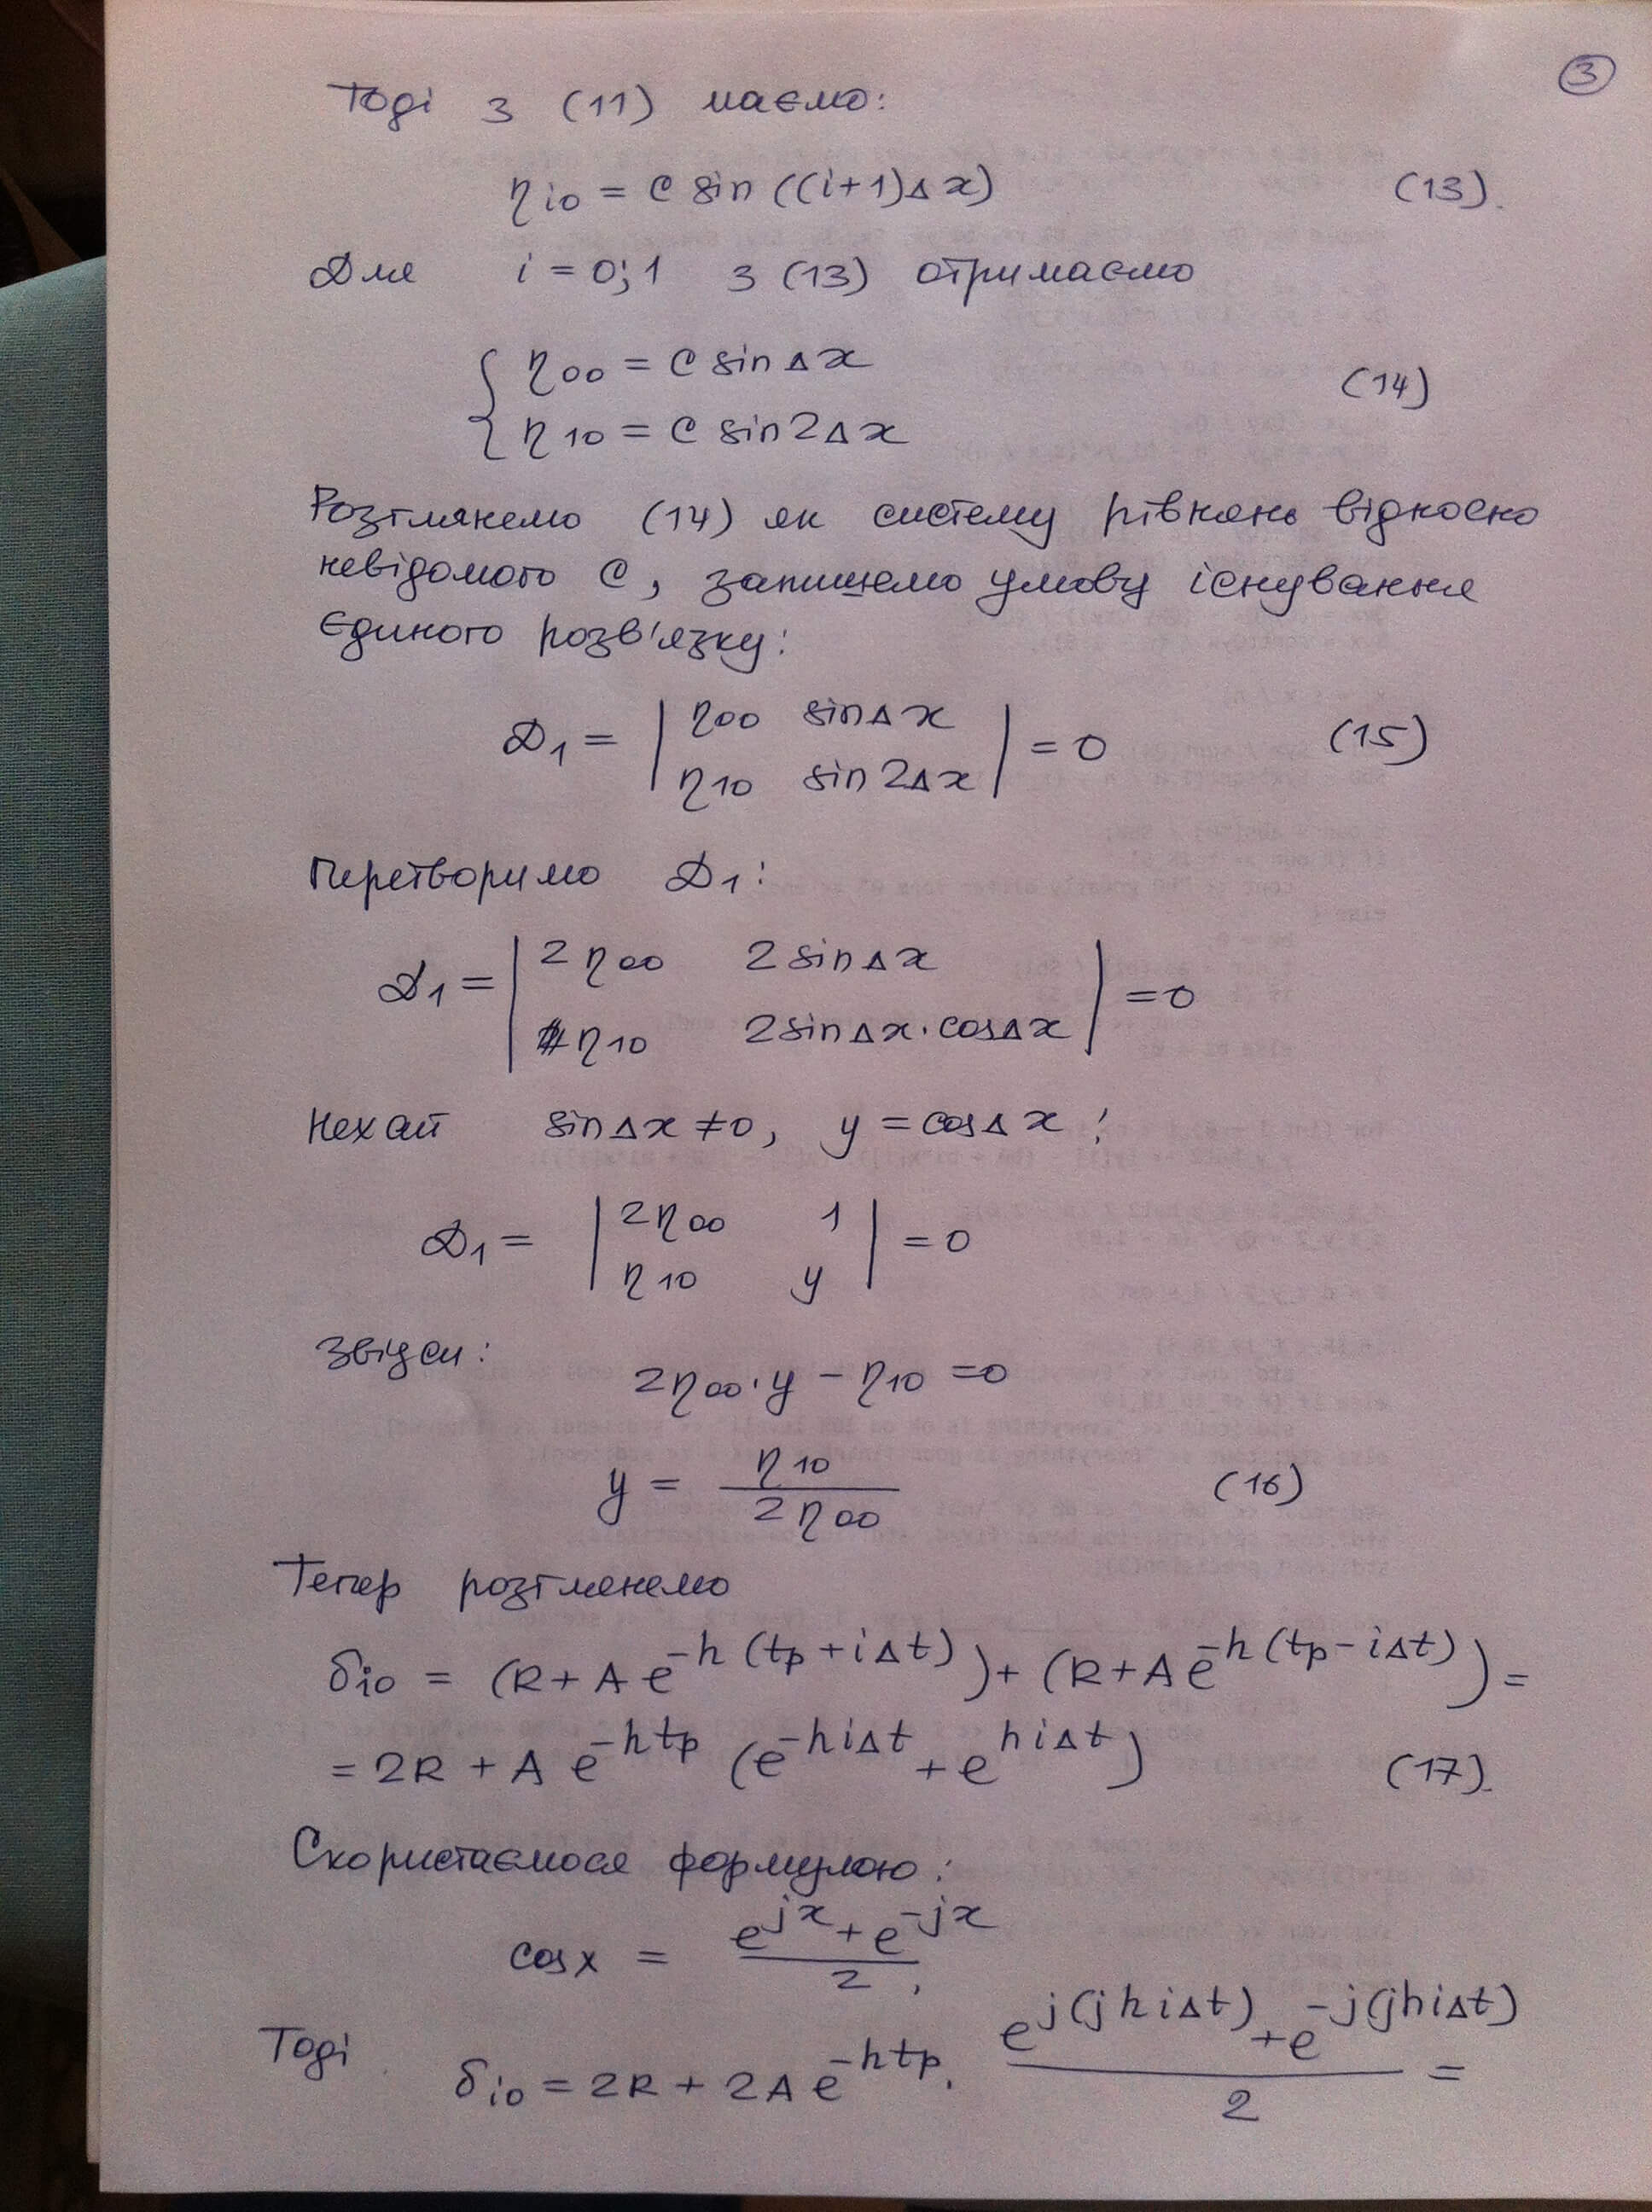 3
Тоді з (11) маємо:
η i0 = C sin ((i+1)Δx) (13).
Для i = 0; 1 з (13) отримаємо
{ η00 = C sin Δx
η10 = C sin 2Δx (14)
Розглянемо (14) як систему рівнянь відносно
невідомого C, запишемо умову існування
єдиного розв'язку:
D1 = | η00 sinΔx
η10 sin 2Δx | = 0 (15)
Перетворимо D1:
D1 = | 2η00 2 sin Δx
η10 2sin Δx · cosΔx | = 0
Нехай sin Δx ≠ 0, y = cosΔx:
D1 = | 2η00 1
η10 y | = 0
Звідси:
2η00 · y − η10 = 0
y = η10 / 2η00 (16)
Тепер розглянемо
δi0 = (R + A e^-h(tp + iΔt)) + (R + A e^-h(tp − iΔt)) =
= 2R + A e^-htp (e^-hiΔt + e^hiΔt) (17).
Скористаємося формулою:
cos x = (e^jx + e^-jx) / 2,
Тоді δi0 = 2R + 2A e^-htp · (e^j(jhiΔt) + e^-j(jhiΔt)) / 2 =